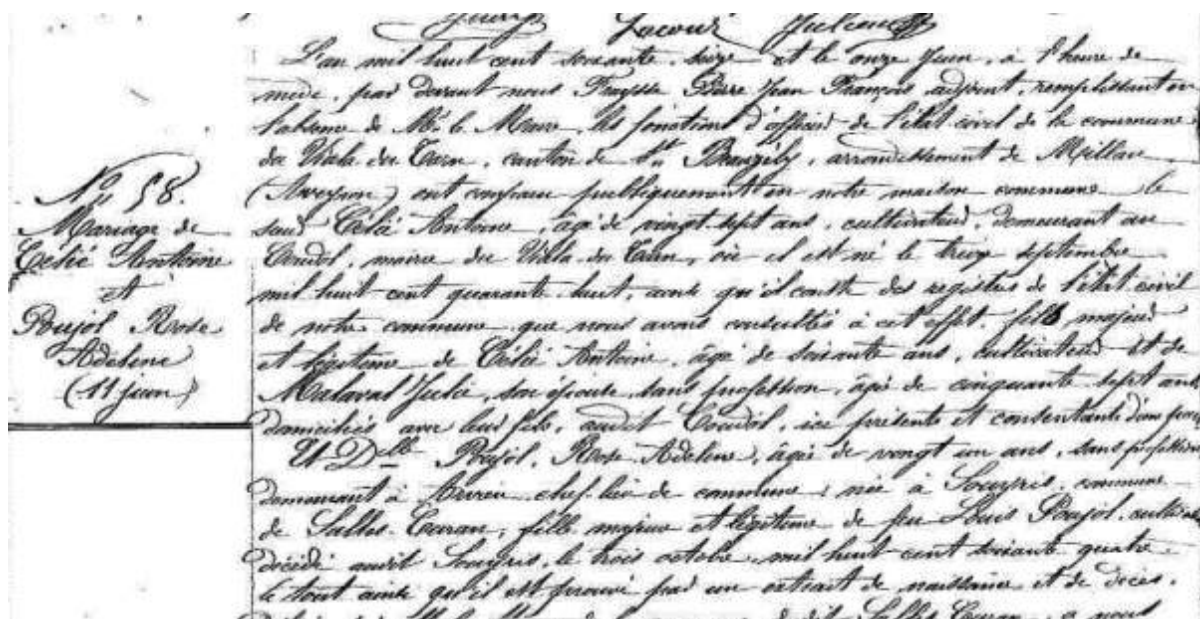 Lacour
L'an mil huit cent soixante seize et le onze Juin, à l'heure de
midi, par devant nous Fraysse Pierre Jean François adjoint, remplissant en
l'absence de Mr le Maire, les fonctions d'officier de l'état civil de la commune
du Viala du Tarn, canton de St Beauzély, arrondissement de Millau
(Aveyron) ont comparu publiquement en notre maison commune le
sieur Célié Antoine, âgé de vingt-sept ans, cultivateur, demeurant au
Coudol, mairie du Viala du Tarn, où il est né le treize septembre
mil huit cent quarante huit, ainsi qu'il conste des registres de l'état civil
de notre commune que nous avons consultés à cet effet, fils majeur
et légitime de Célié Antoine, âgé de soixante ans, cultivateur et de
Malaval Julie, son épouse, sans profession, âgée de cinquante sept ans
domiciliés avec leur fils, audit Coudol, ici présents et consentants d'une part
Et Dlle Poujol, Rose Adeline, âgée de vingt un ans, sans profession
demeurant à Arvieu chef-lieu de commune, née à Souyris, commune
de Salles-Curan, fille majeure et légitime de feu Louis Poujol, cultivateur
décédé audit Souyris, le trois octobre mil huit cent soixante quatre
le tout ainsi qu'il est prouvé par un extrait de naissance et de décès,
Salles-Curan, a nous
No 58.
Mariage de
Célié Antoine
et
Poujol Rose
Adeline
(11 juin)